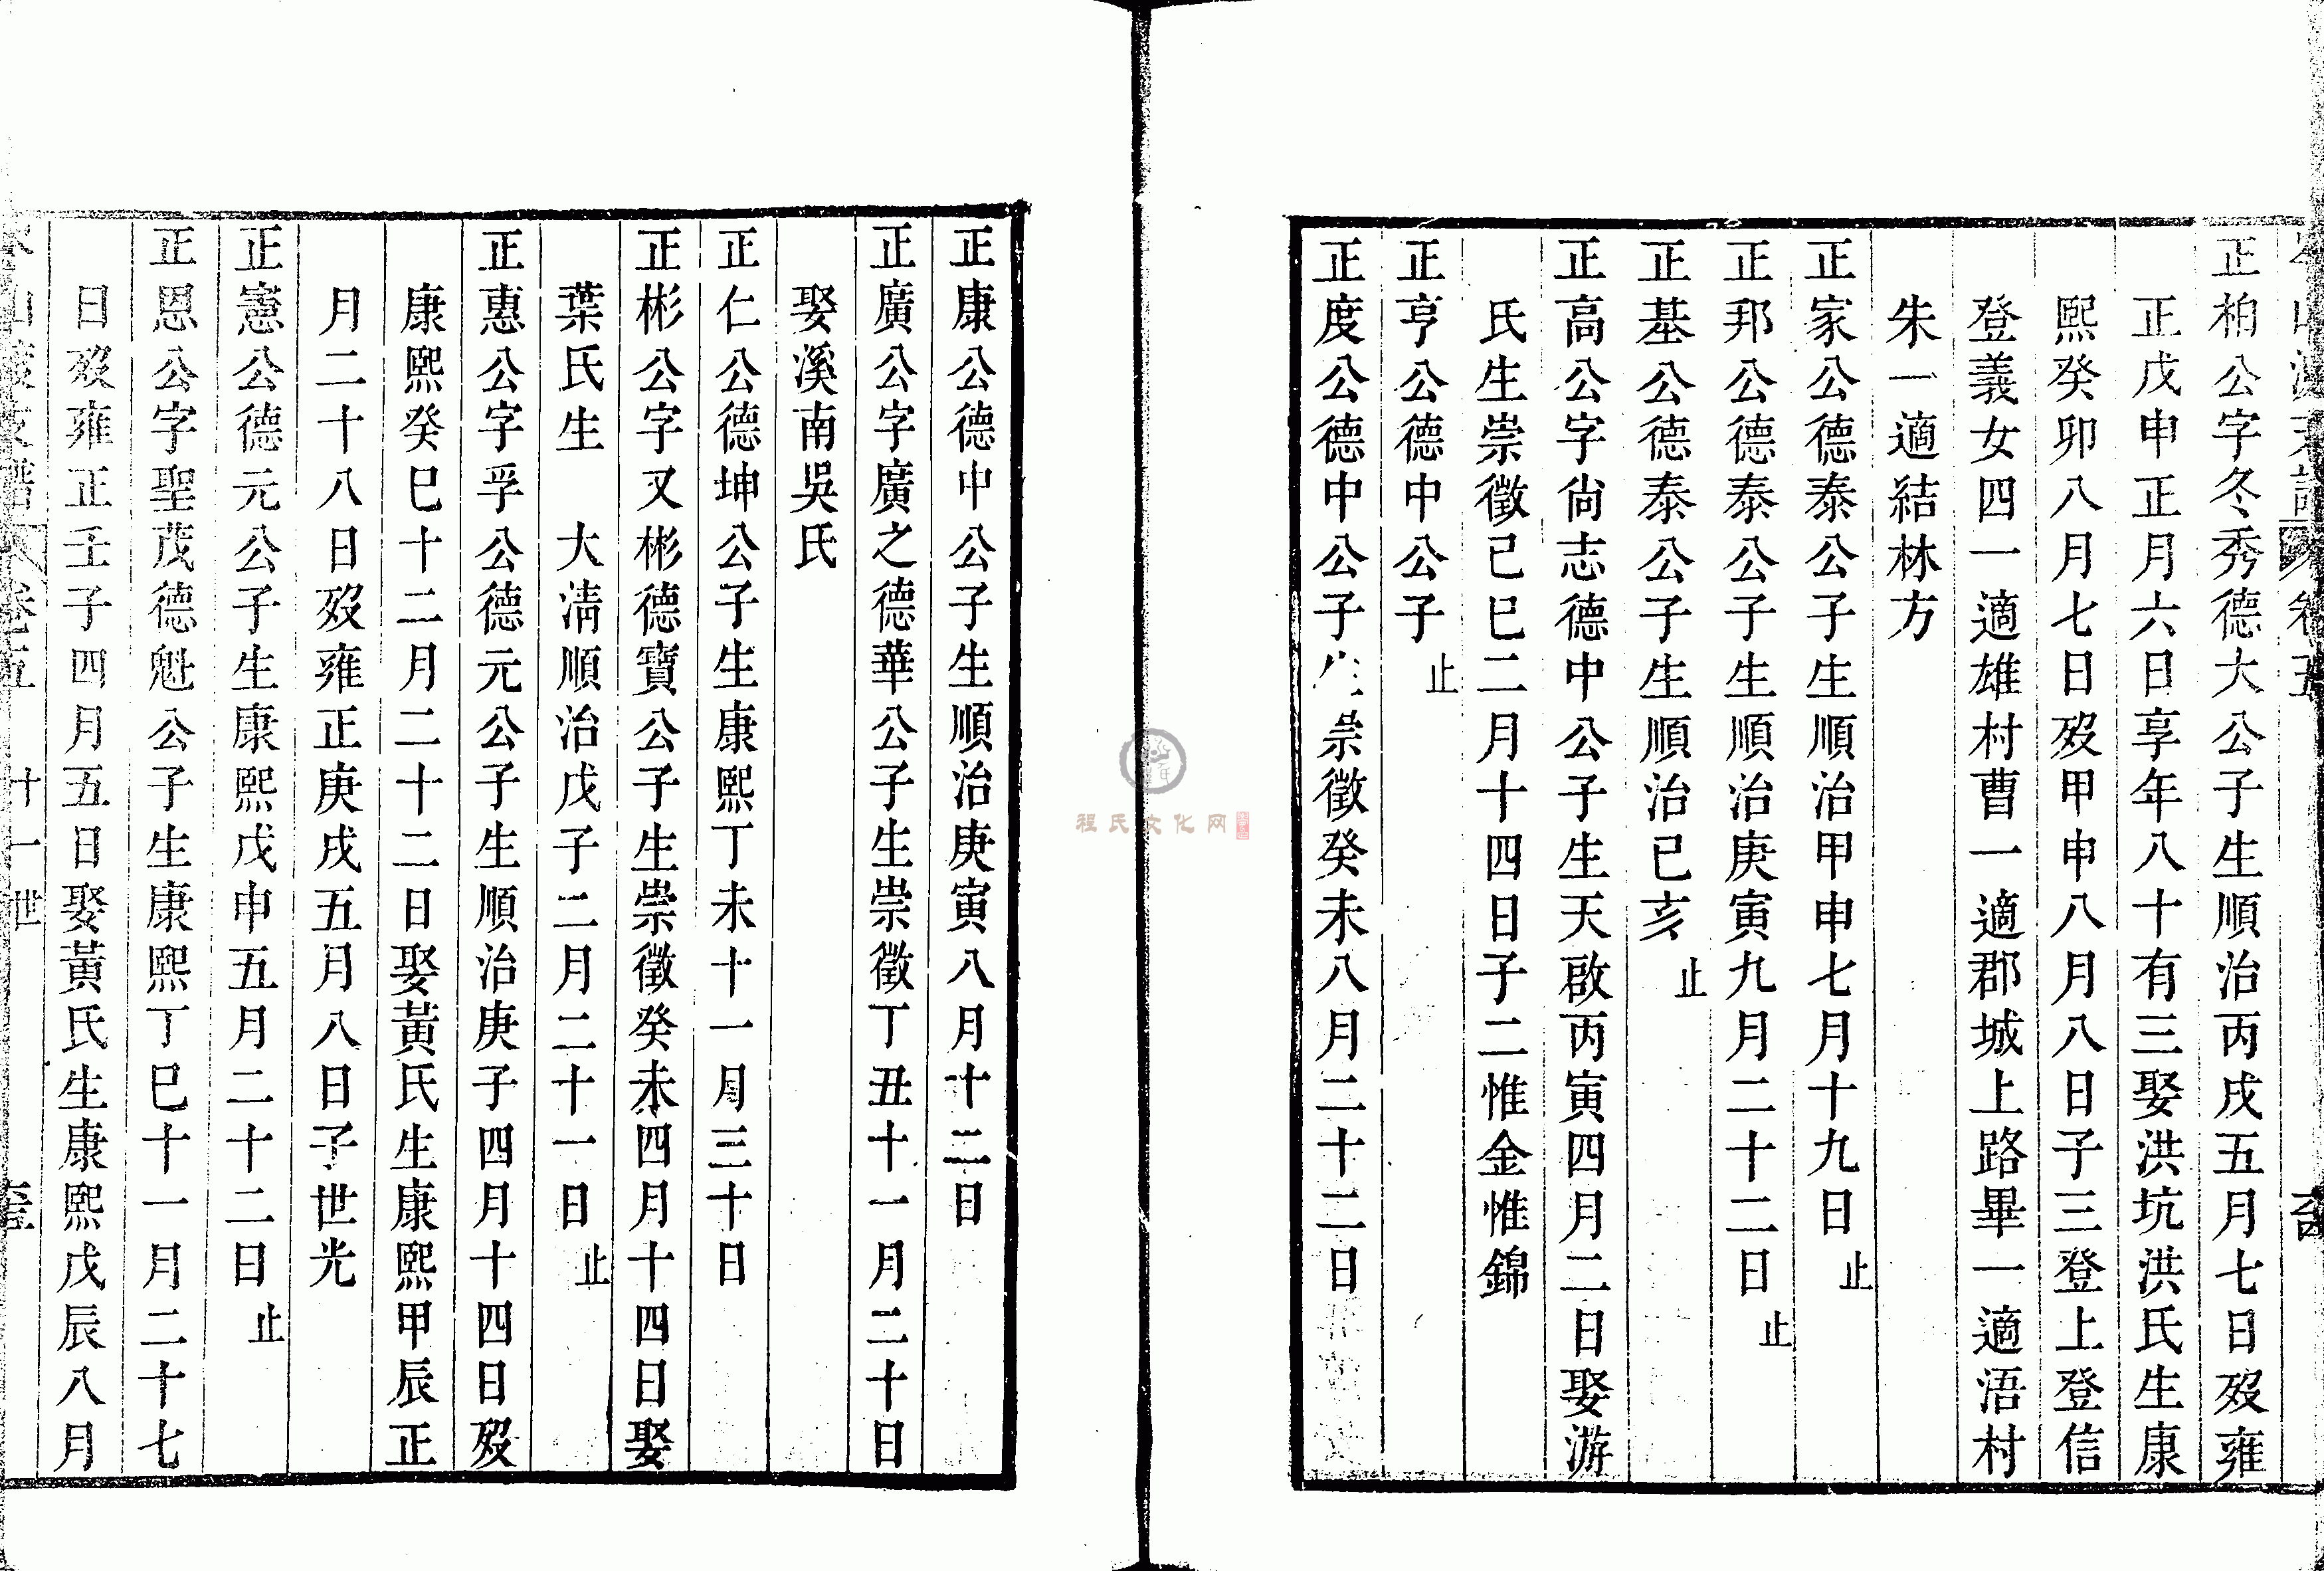 正柏公字冬秀德大公子生順治丙戌五月七日歿雍
正戊申正月六日享年八十有三娶洪坑洪氏生康
熙癸卯八月七日歿甲申八月八日子三登上登信
登義女四一適雄村曹一適郡城上路畢一適浯村
朱一適結林方
正家公德泰公子生順治甲申七月十九日止
正邦公德泰公子生順治庚寅九月二十二日止
正基公德泰公子生順治已亥止
正高公字尙志德中公子生天啟丙寅四月二日娶游
氏生崇徵己巳二月十四日子二惟金惟錦
正亨公德中公子止
正度公德中公子生崇徵癸未八月二十二日
正康公德中公子生順治庚寅八月十二日
正廣公字廣之德華公子生崇徵丁丑十一月二十日
娶溪南吳氏
正仁公德坤公子生康熙丁未十一月三十日
正彬公字叉彬德寶公子生崇徵癸未四月十四日娶
葉氏生 大淸順治戊子二月二十一日止
正惠公字孚公德元公子生順治庚子四月十四日歿
康熙癸巳十二月二十二日娶黃氏生康熙甲辰正
月二十八日歿雍正庚戌五月八日子世光
正憲公德元公子生康熙戊申五月二十二日止
正恩公字聖茂德魁公子生康熙丁巳十一月二十七
日歿雍正壬子四月五日娶黃氏生康熙戊辰八月
卷五 十一世
程氏文化网